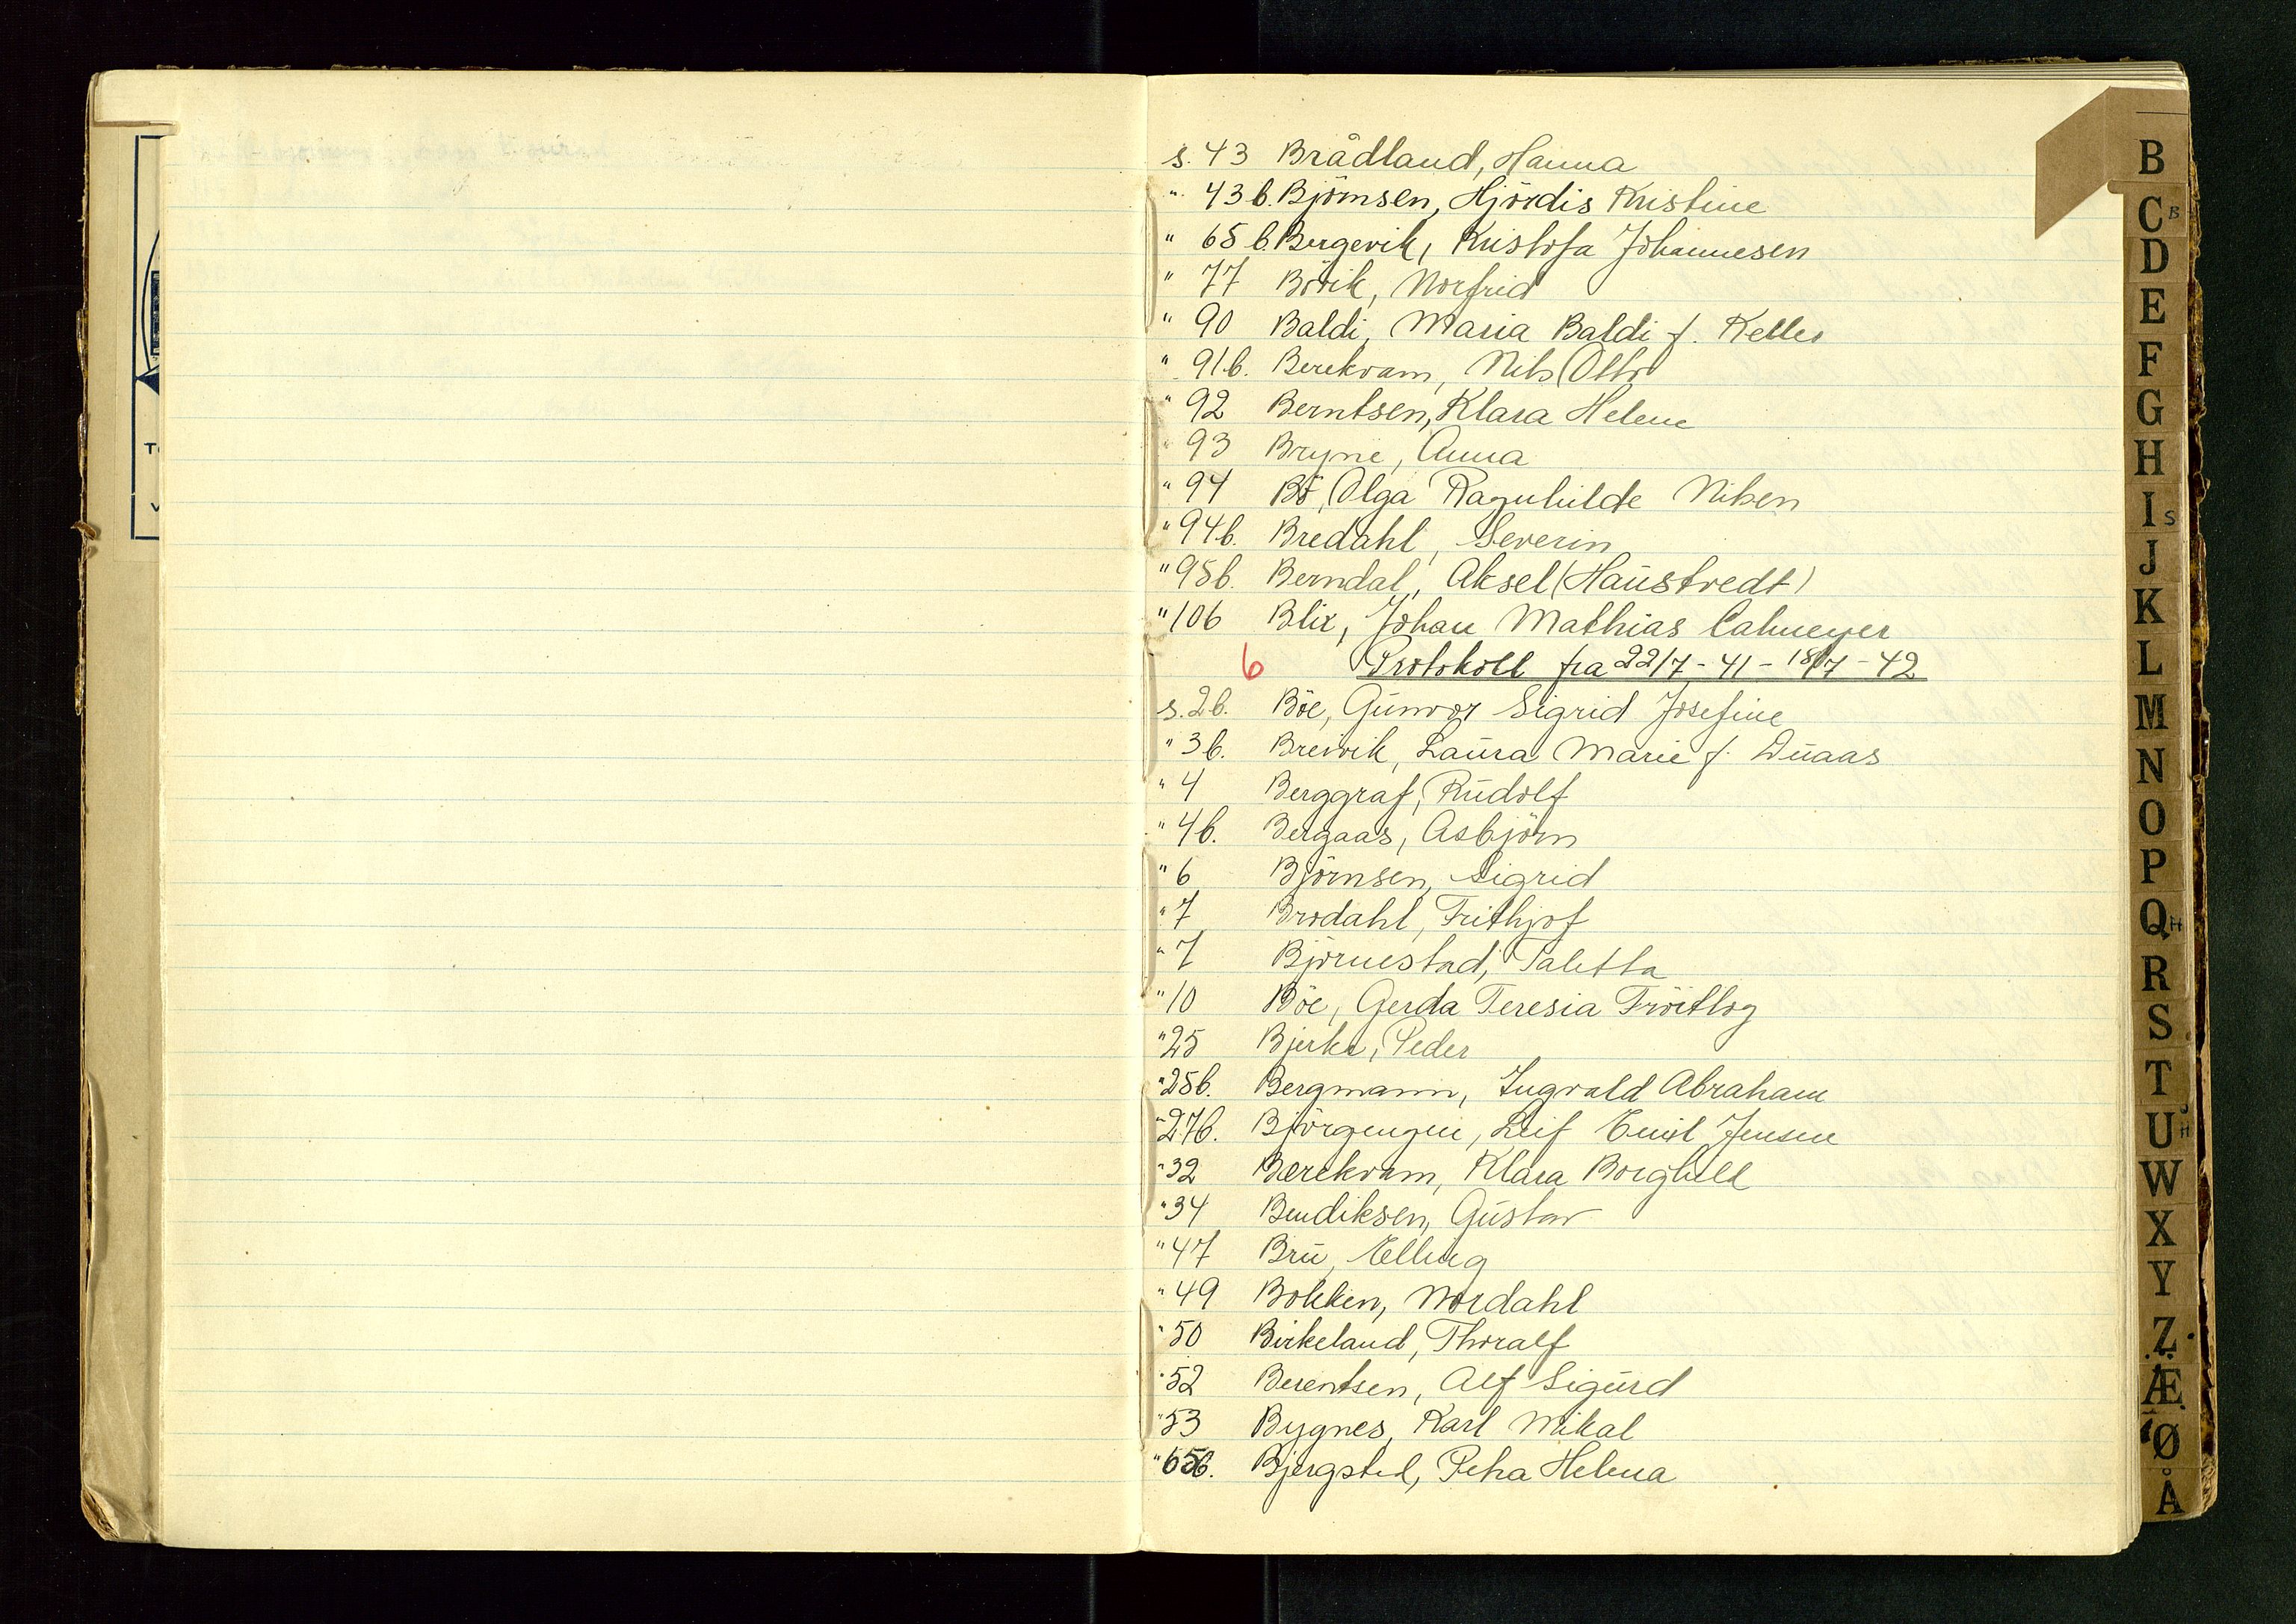 s. 43 Brådland, Hanna
" 43 b. Björnsen, Hjördis Kristine
" 65 b. Bergevik, Kristofa Johannesen
" 77 Börik, Norfrid
" 90 Baldi, Maria Baldi f. Keller
" 91 b. Berekvam, Nils Otto
" 92 Berntsen, Klara Helene
" 93 Bryne, Anna
" 94 Bö, Olga Ragnhilde Nilsen
" 94 b. Bredahl, Severin
" 95 b. Berndal, Aksel (Haustvedt)
" 106 Blix, Johan Mathias Calmeyer
6 Protokoll fra 22/7-41-18/7-42
s. 2 b. Böe, Gunvor Sigrid Josefine
" 3 b. Breivik, Laura Marie f. Duaas
" 4 Berggraf, Rudolf
" 4 b. Bergaas, Asbjörn
" 6 Björnsen, Sigrid
" 7 Brodahl, Frithjof
" 7 Björnestad, Taletta
" 10 Böe, Gerda Teresia Fröitlog
" 25 Bjerke, Peder
" 25 b. Bergmann, Ingvald Abraham
" 27 b. Björgengen, Leif Emil Jensen
" 32 Berekvam, Klara Borghild
" 34 Bendiksen, Gustav
" 47 Bru, Elling
" 49 Bokken, Nordahl
" 50 Birkeland, Thoralf
" 52 Berentsen, Alf Sigurd
" 53 Bygnes, Karl Mikal
" 65 b. Bjergsted, Petra Helena
B
C B
D
E
F
G
H
I S
J
K
L
M
N
O
P
Q H
R
S
T
U H
W
X
Y
Z
Æ
Ø
Å